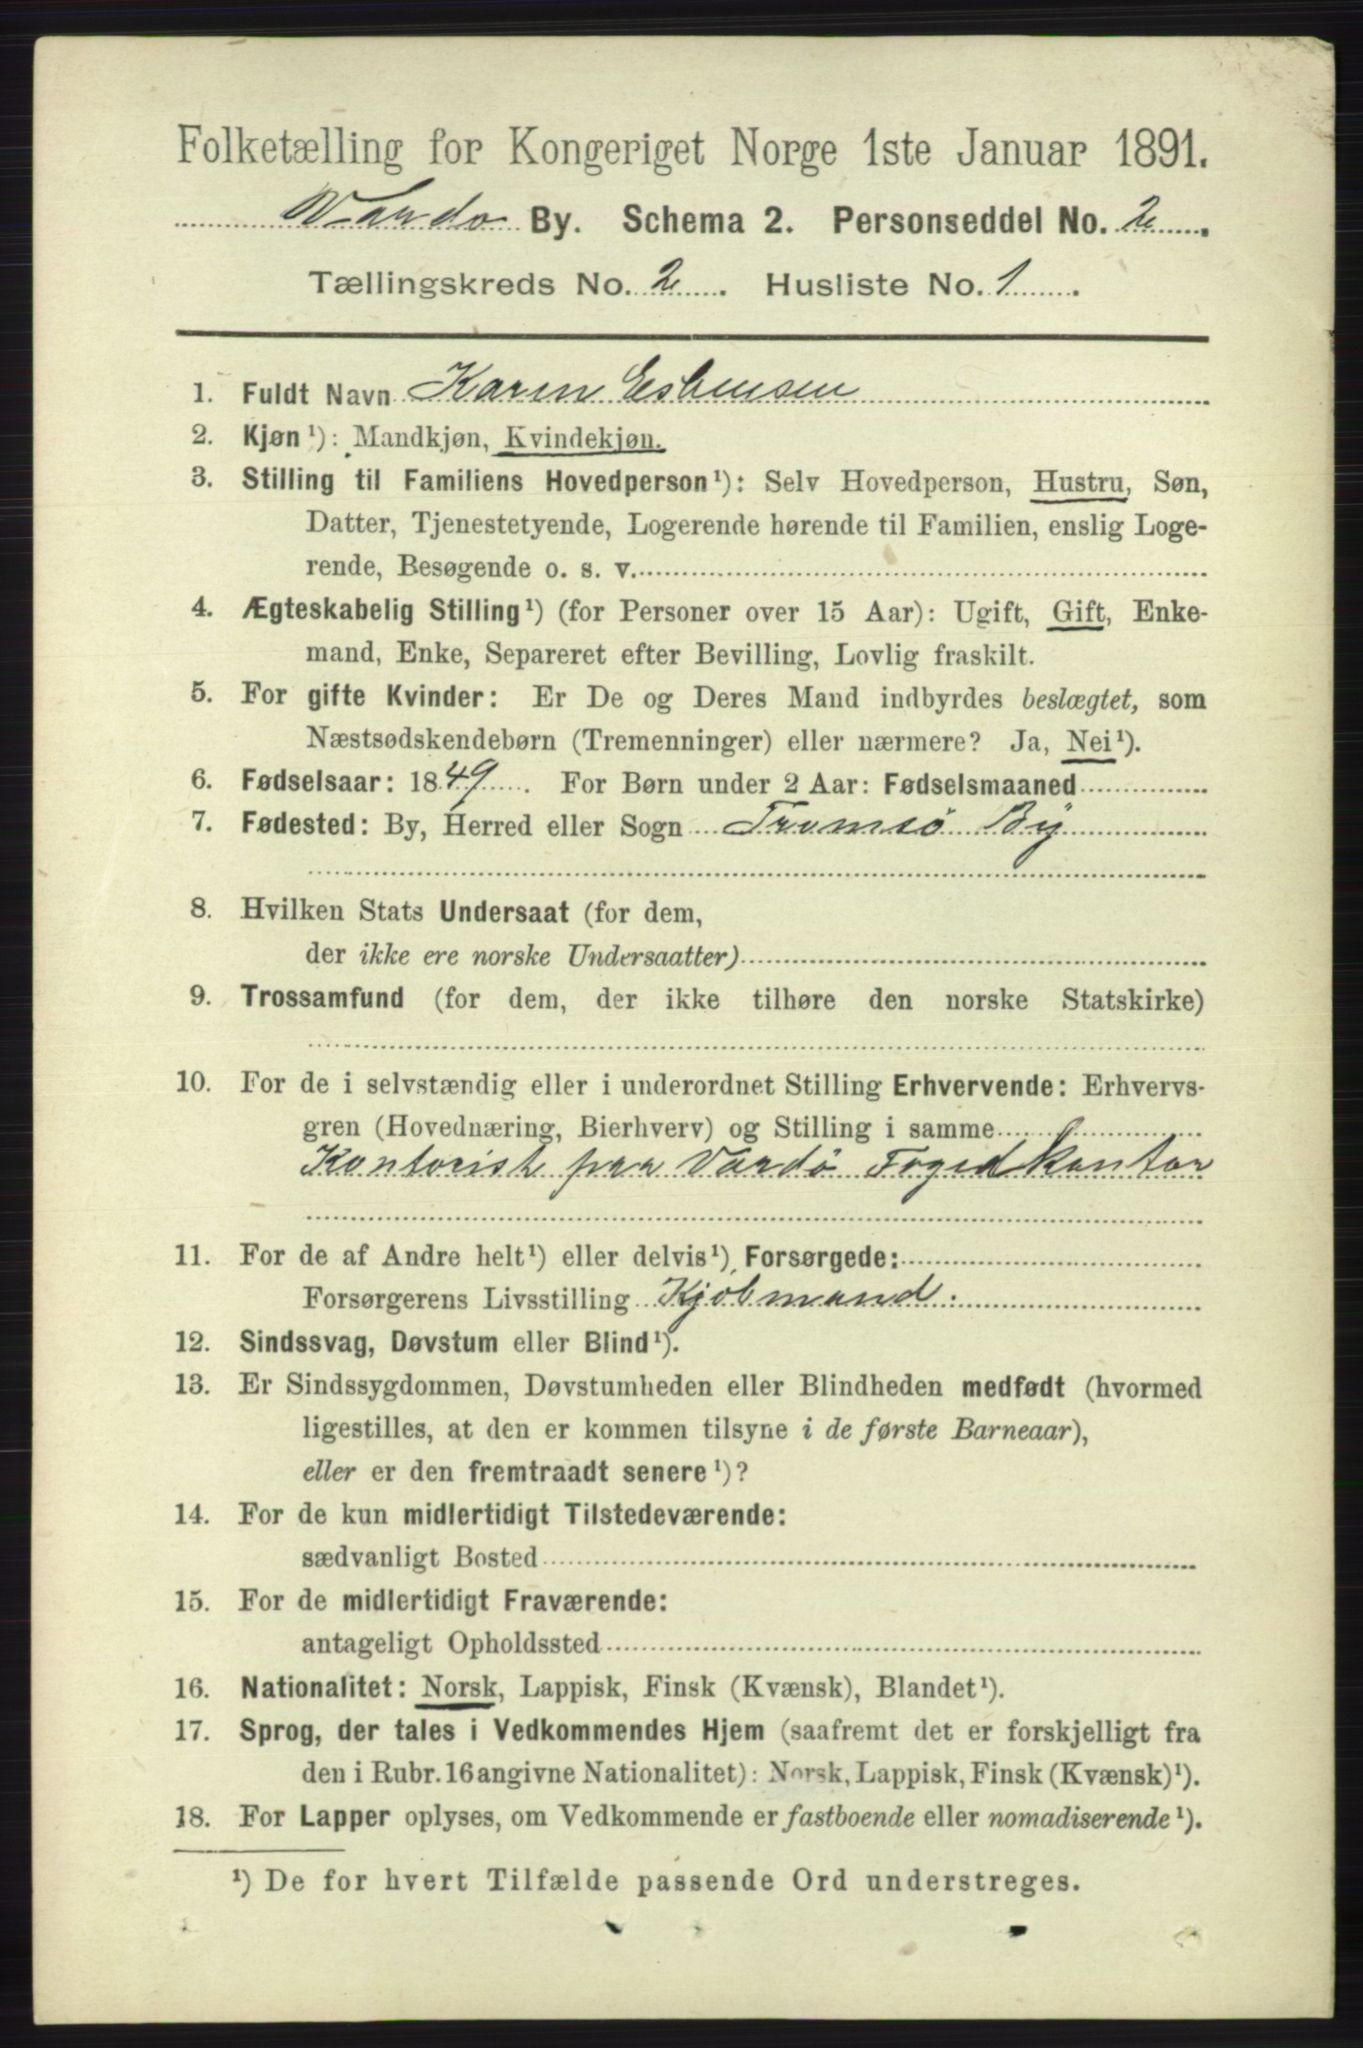 Folketælling for Kongeriget Norge 1ste Januar 1891.
Vardø By. Schema 2. Personseddel No. 2.
Tællingskreds No. 2. Husliste No. 1.
1. Fuldt Navn Karen Esbensen
2. Kjøn¹): Mandkjøn, Kvindekjøn.
3. Stilling til Familiens Hovedperson¹): Selv Hovedperson, Hustru, Søn,
Datter, Tjenestetyende, Logerende hørende til Familien, enslig Loge-
rende, Besøgende o. s. v.
4. Ægteskabelig Stilling¹) (for Personer over 15 Aar): Ugift, Gift, Enke-
mand, Enke, Separeret efter Bevilling, Lovlig fraskilt.
5. For gifte Kvinder: Er De og Deres Mand indbyrdes beslægtet, som
Næstsødskendebørn (Tremenninger) eller nærmere? Ja, Nei¹).
6. Fødselsaar: 1849. For Børn under 2 Aar: Fødselsmaaned
7. Fødested: By, Herred eller Sogn Tromsö By
8. Hvilken Stats Undersaat (for dem,
der ikke ere norske Undersaatter)
9. Trossamfund (for dem, der ikke tilhøre den norske Statskirke)
10. For de i selvstændig eller i underordnet Stilling Erhvervende: Erhvervs-
gren (Hovednæring, Bierhverv) og Stilling i samme
Kontorist paa Vardö Fogedkontor
11. For de af Andre helt¹) eller delvis¹) Forsørgede:
Forsørgerens Livsstilling Kjöbmand.
12. Sindssvag, Døvstum eller Blind¹).
13. Er Sindssygdommen, Døvstumheden eller Blindheden medfødt (hvormed
ligestilles, at den er kommen tilsyne i de første Barneaar),
eller er den fremtraadt senere¹)?
14. For de kun midlertidigt Tilstedeværende:
sædvanligt Bosted
15. For de midlertidigt Fraværende:
antageligt Opholdssted
16. Nationalitet: Norsk, Lappisk, Finsk (Kvænsk), Blandet¹).
17. Sprog, der tales i Vedkommendes Hjem (saafremt det er forskjelligt fra
den i Rubr. 16 angivne Nationalitet): Norsk, Lappisk, Finsk (Kvænsk)¹).
18. For Lapper oplyses, om Vedkommende er fastboende eller nomadiserende¹).
¹) De for hvert Tilfælde passende Ord understreges.